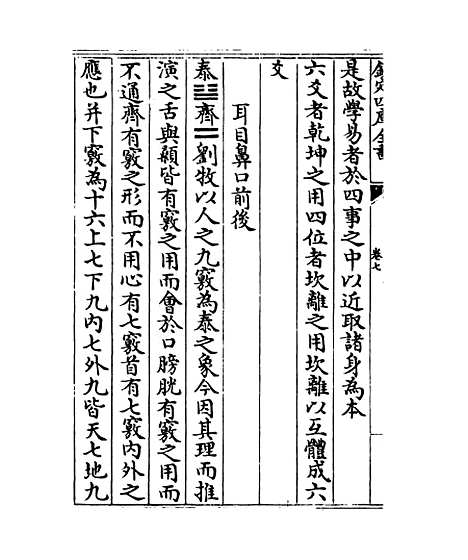 欽定四庫全書
卷七
是故學易者於四事之中以近取諸身為本
六爻者乾坤之用四位者坎離之用坎離以互體成六
爻
耳目鼻口前後
泰䷊齊〓劉牧以人之九竅為泰之象今因其理而推
演之舌與顙皆有竅之用而會於口膀胱有竅之用而
不通齊有竅之形而不用心有七竅首有七竅內外之
應也并下竅為十六上七下九內七外九皆天七地九